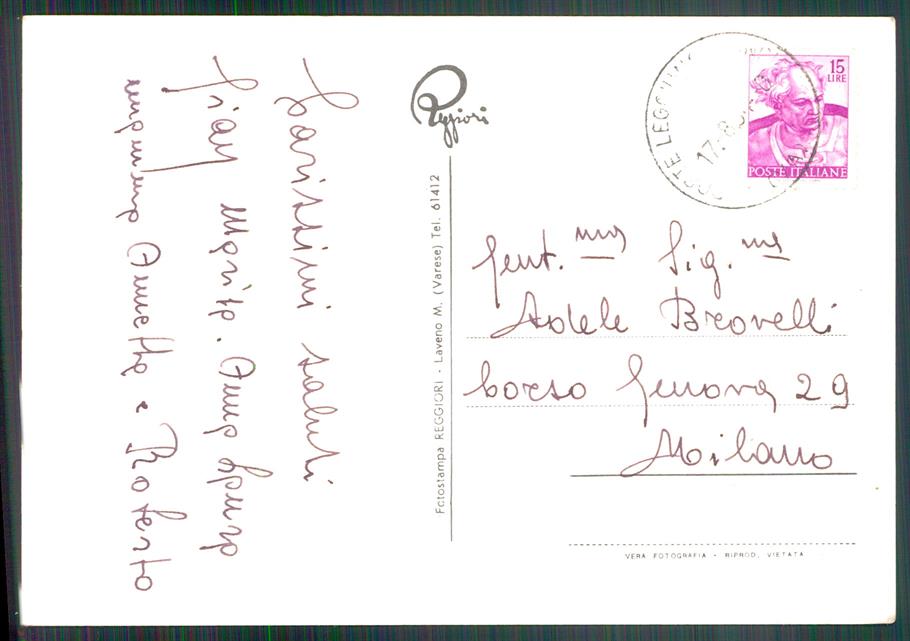 Carissimi saluti
Gian Mario. Anna
mamma Annetta e Roberto
Reggiori
Fotostampa REGGIORI - Laveno M. (Varese) Tel. 61412
POSTE LEGGIUNO
17.8.
15
LIRE
POSTE ITALIANE
Gent.ma Sig.na
Adele Brovelli
Corso Genova 29
Milano
VERA FOTOGRAFIA - RIPROD. VIETATA